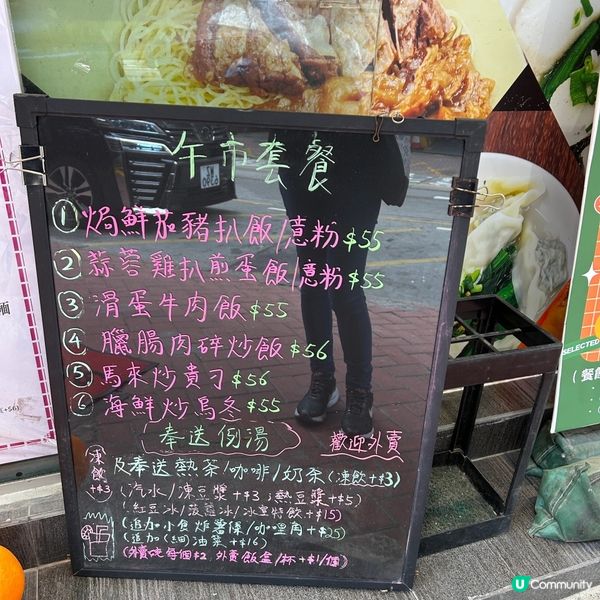 午市套餐
① 焗鮮茄豬扒飯/意粉 $55
② 蒜蓉雞扒煎蛋飯/意粉 $55
③ 滑蛋牛肉飯 $55
④ 臘腸肉碎炒飯 $56
⑤ 馬來炒貴刁 $56
⑥ 海鮮炒烏冬 $55
奉送例湯 歡迎外賣
凍飲+$3
及奉送熱茶/咖啡/奶茶(凍飲+$3)
(汽水/凍豆漿+$3;熱豆漿+$5)
(紅豆冰/菠蘿冰/冰室特飲+$15)
(追加小食炸薯條/咖喱角+$25)
(追加(細)油菜+$16)
SELECTED
U Community